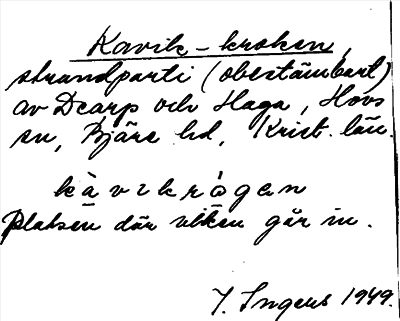 Kavik-kroken,
strandparti (obestämbart)
av Dearp och Haga, Hovs
sn, Bjäre hd, Krist. län.
kàvikrågan
Platsen där viken går in.
Y. Ingers 1949.